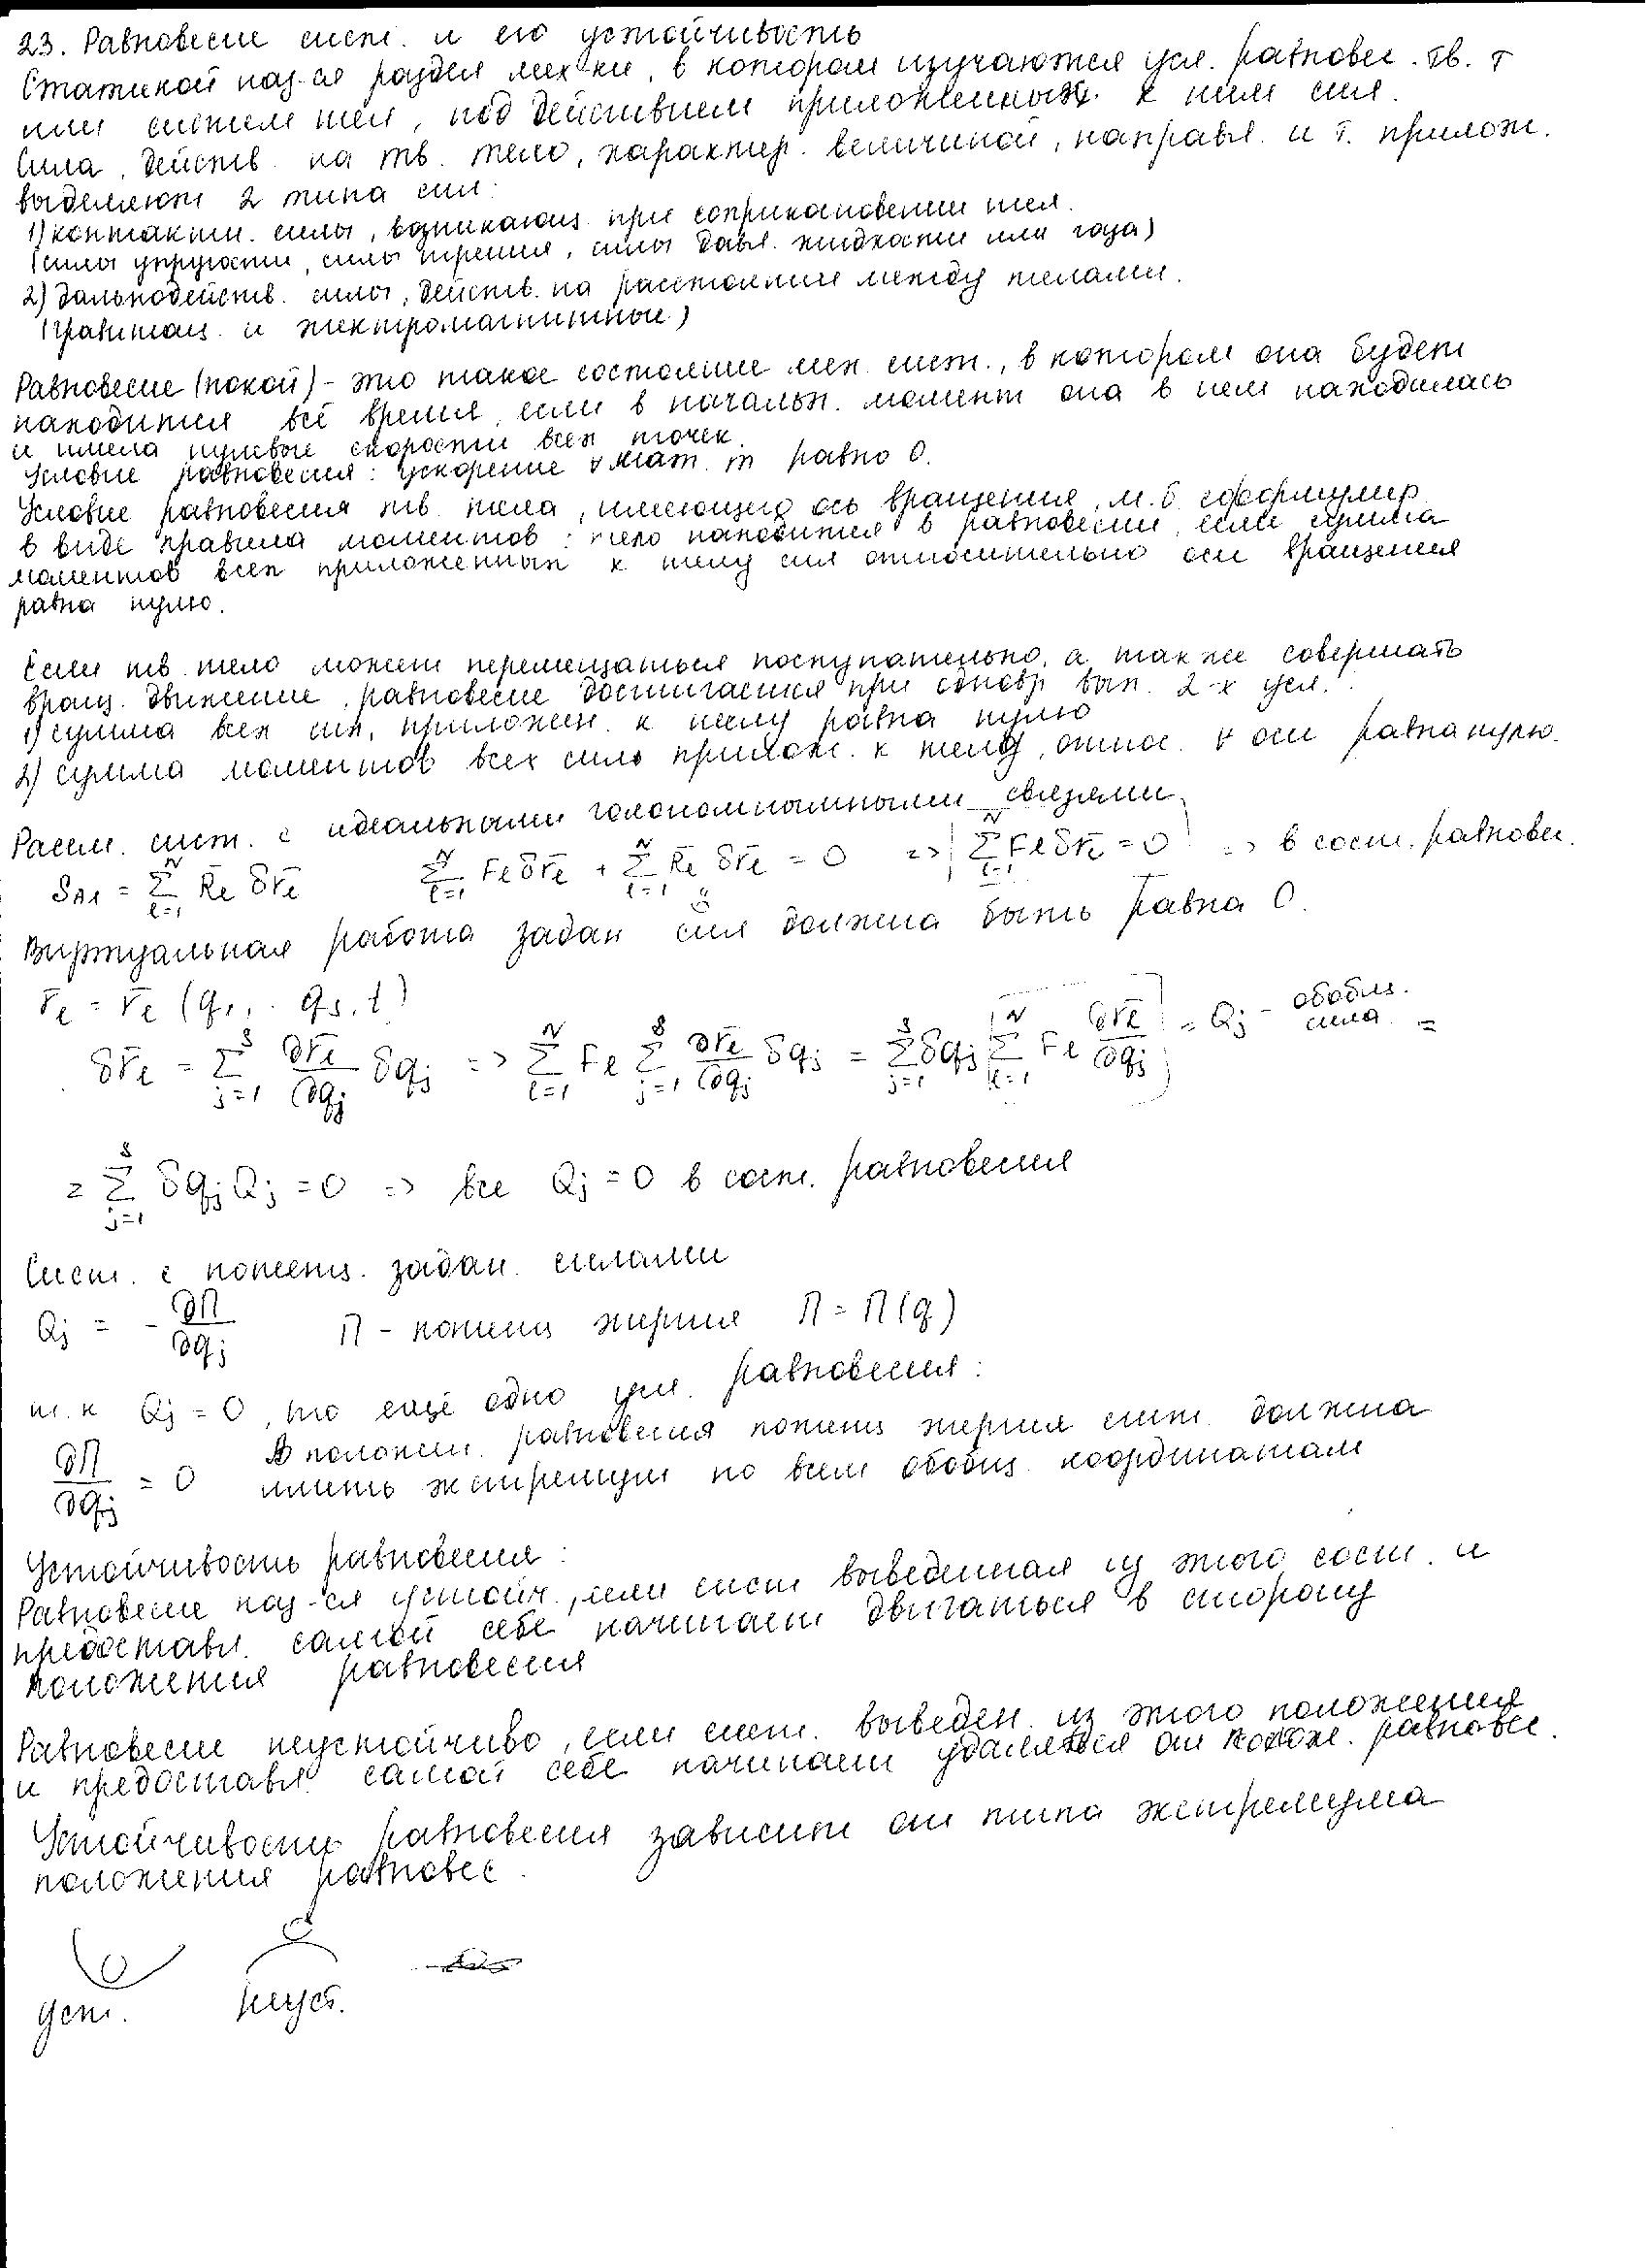 23. Равновесие сист. и его устойчивость
Статикой наз-ся раздел мех-ки, в котором изучаются усл. равновес. тв. т
или систем тел, под действием приложенных к ним сил.
Сила, действ. на тв. тело, характер. величиной, направл. и т. прилож.
выделяют 2 типа сил:
1) контактн. силы, возникающ. при соприкосновении тел.
(силы упругости, силы трения, силы давл. жидкости или газа)
2) дальнодейств. силы, действ. на расстоянии между телами.
(гравитац. и электромагнитные)
Равновесие (покой) - это такое состояние мех. сист., в котором она будет
находится всё время, если в начальн. момент она в нем находилась
и имела нулевые скорости всех точек.
Условие равновесия: ускорение ∀ мат. т равно 0.
Условие равновесия тв. тела, имеющего ось вращения, м.б. сформулир.
в виде правила моментов: тело находится в равновесии, если сумма
моментов всех приложенных к телу сил относительно оси вращения
равна нулю.
Если тв. тело может перемещаться поступательно, а также совершать
вращ. движение, равновесие достигается при одновр. вып. 2-х усл.:
1) сумма всех сил, приложен. к телу равна нулю
2) сумма моментов всех сил прилож. к телу, относ. ∀ оси равна нулю.
Рассм. сист. с идеальными голономными связями
δA₁ = Σ_{l=1}^{N} R̄_l δr̄_l   Σ_{l=1}^{N} F_l δr̄_l + Σ_{l=1}^{N} R̄_l δr̄_l = 0 => Σ_{l=1}^{N} F_l δr̄_l = 0 => в сост. равновес.
Виртуальная работа задан сил должна быть равна 0.
r̄_l = r̄_l (q₁, .. q_s, t)
δr̄_l = Σ_{j=1}^{s} ∂r̄_l/∂q_j δq_j => Σ_{l=1}^{N} F_l Σ_{j=1}^{s} ∂r̄_l/∂q_j δq_j = Σ_{j=1}^{s} δq_j [Σ_{l=1}^{N} F_l ∂r̄_l/∂q_j] = Q_j - обобщ. сила =
= Σ_{j=1}^{s} δq_j Q_j = 0 => все Q_j = 0 в сост. равновесия
Сист. с потенц. задан. силами
Q_j = - ∂П/∂q_j   П - потенц энергия П = П(q)
т.к Q_j = 0, то ещё одно усл. равновесия:
∂П/∂q_j = 0 В положен. равновесия потенц энергия сист. должна
иметь экстремум по всем обобщ. координатам
Устойчивость равновесия:
Равновесие наз-ся устойч., если сист выведенная из этого сост. и
предоставл. самой себе начинает двигаться в сторону
положения равновесия
Равновесие неустойчиво, если сист. выведен. из этого положения
и предоставл. самой себе начинает удаляться от полож. равновес.
Устойчивость равновесия зависит от типа экстремума
положения равновес.
уст. неуст.